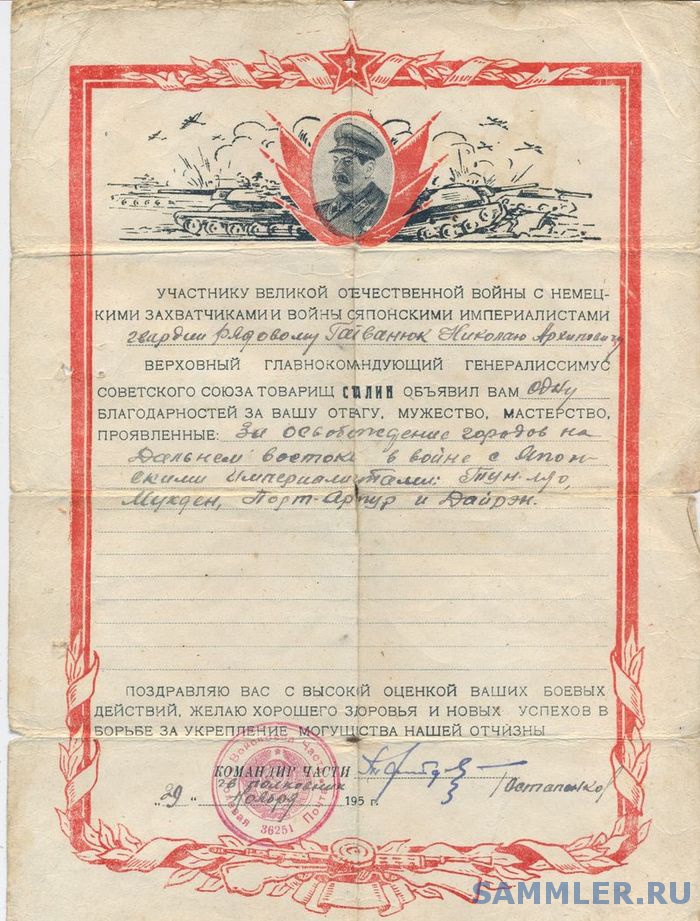 УЧАСТНИКУ ВЕЛИКОЙ ОТЕЧЕСТВЕННОЙ ВОЙНЫ С НЕМЕЦ-
КИМИ ЗАХВАТЧИКАМИ И ВОЙНЫ С ЯПОНСКИМИ ИМПЕРИАЛИСТАМИ
гвардии рядовому Гайванюк Николаю Архиповичу
ВЕРХОВНЫЙ ГЛАВНОКОМАНДУЮЩИЙ ГЕНЕРАЛИССИМУС
СОВЕТСКОГО СОЮЗА ТОВАРИЩ СТАЛИН ОБЪЯВИЛ ВАМ одну
БЛАГОДАРНОСТЕЙ ЗА ВАШУ ОТВАГУ, МУЖЕСТВО, МАСТЕРСТВО,
ПРОЯВЛЕННЫЕ: За освобождение городов на
Дальнем востоке в войне с Япон-
скими Империалистами: Тун-ляо,
Мукден, Порт-Артур и Дайрэн.
ПОЗДРАВЛЯЮ ВАС С ВЫСОКОЙ ОЦЕНКОЙ ВАШИХ БОЕВЫХ
ДЕЙСТВИЙ, ЖЕЛАЮ ХОРОШЕГО ЗДОРОВЬЯ И НОВЫХ УСПЕХОВ В
БОРЬБЕ ЗА УКРЕПЛЕНИЕ МОГУЩЕСТВА НАШЕЙ ОТЧИЗНЫ
КОМАНДИР ЧАСТИ
гв полковник
/Остапенко/
"29" ноября 195 3 г.
Войсковая Часть Полевая Почта
36251
SAMMLER.RU